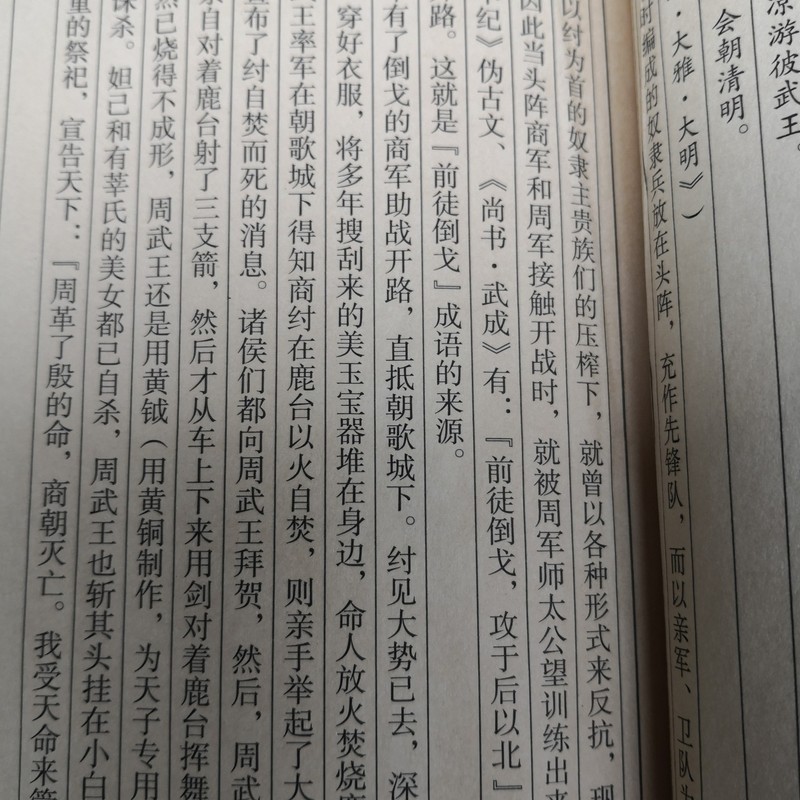 凉游彼武王。
会朝清明。
·大雅·大明》）
时编成的奴隶兵放在头阵，充作先锋队，而以亲军、卫队为
以纣为首的奴隶主贵族们的压榨下，就曾以各种形式来反抗，现
因此当头阵商军和周军接触开战时，就被周军师太公望训练出来
纪》伪古文、《尚书·武成》有：『前徒倒戈，攻于后以北』
路。这就是『前徒倒戈』成语的来源。
有了倒戈的商军助战开路，直抵朝歌城下。纣见大势已去，深
穿好衣服，将多年搜刮来的美玉宝器堆在身边，命人放火焚烧鹿
王率军在朝歌城下得知商纣在鹿台以火自焚，则亲手举起了大
宣布了纣自焚而死的消息。诸侯们都向周武王拜贺，然后，周武
亲自对着鹿台射了三支箭，然后才从车上下来用剑对着鹿台挥舞
然已烧得不成形，周武王还是用黄钺（用黄铜制作，为天子专用
诛杀。妲己和有莘氏的美女都已自杀，周武王也斩其头挂在小白
重的祭祀，宣告天下：『周革了殷的命，商朝灭亡。我受天命来管